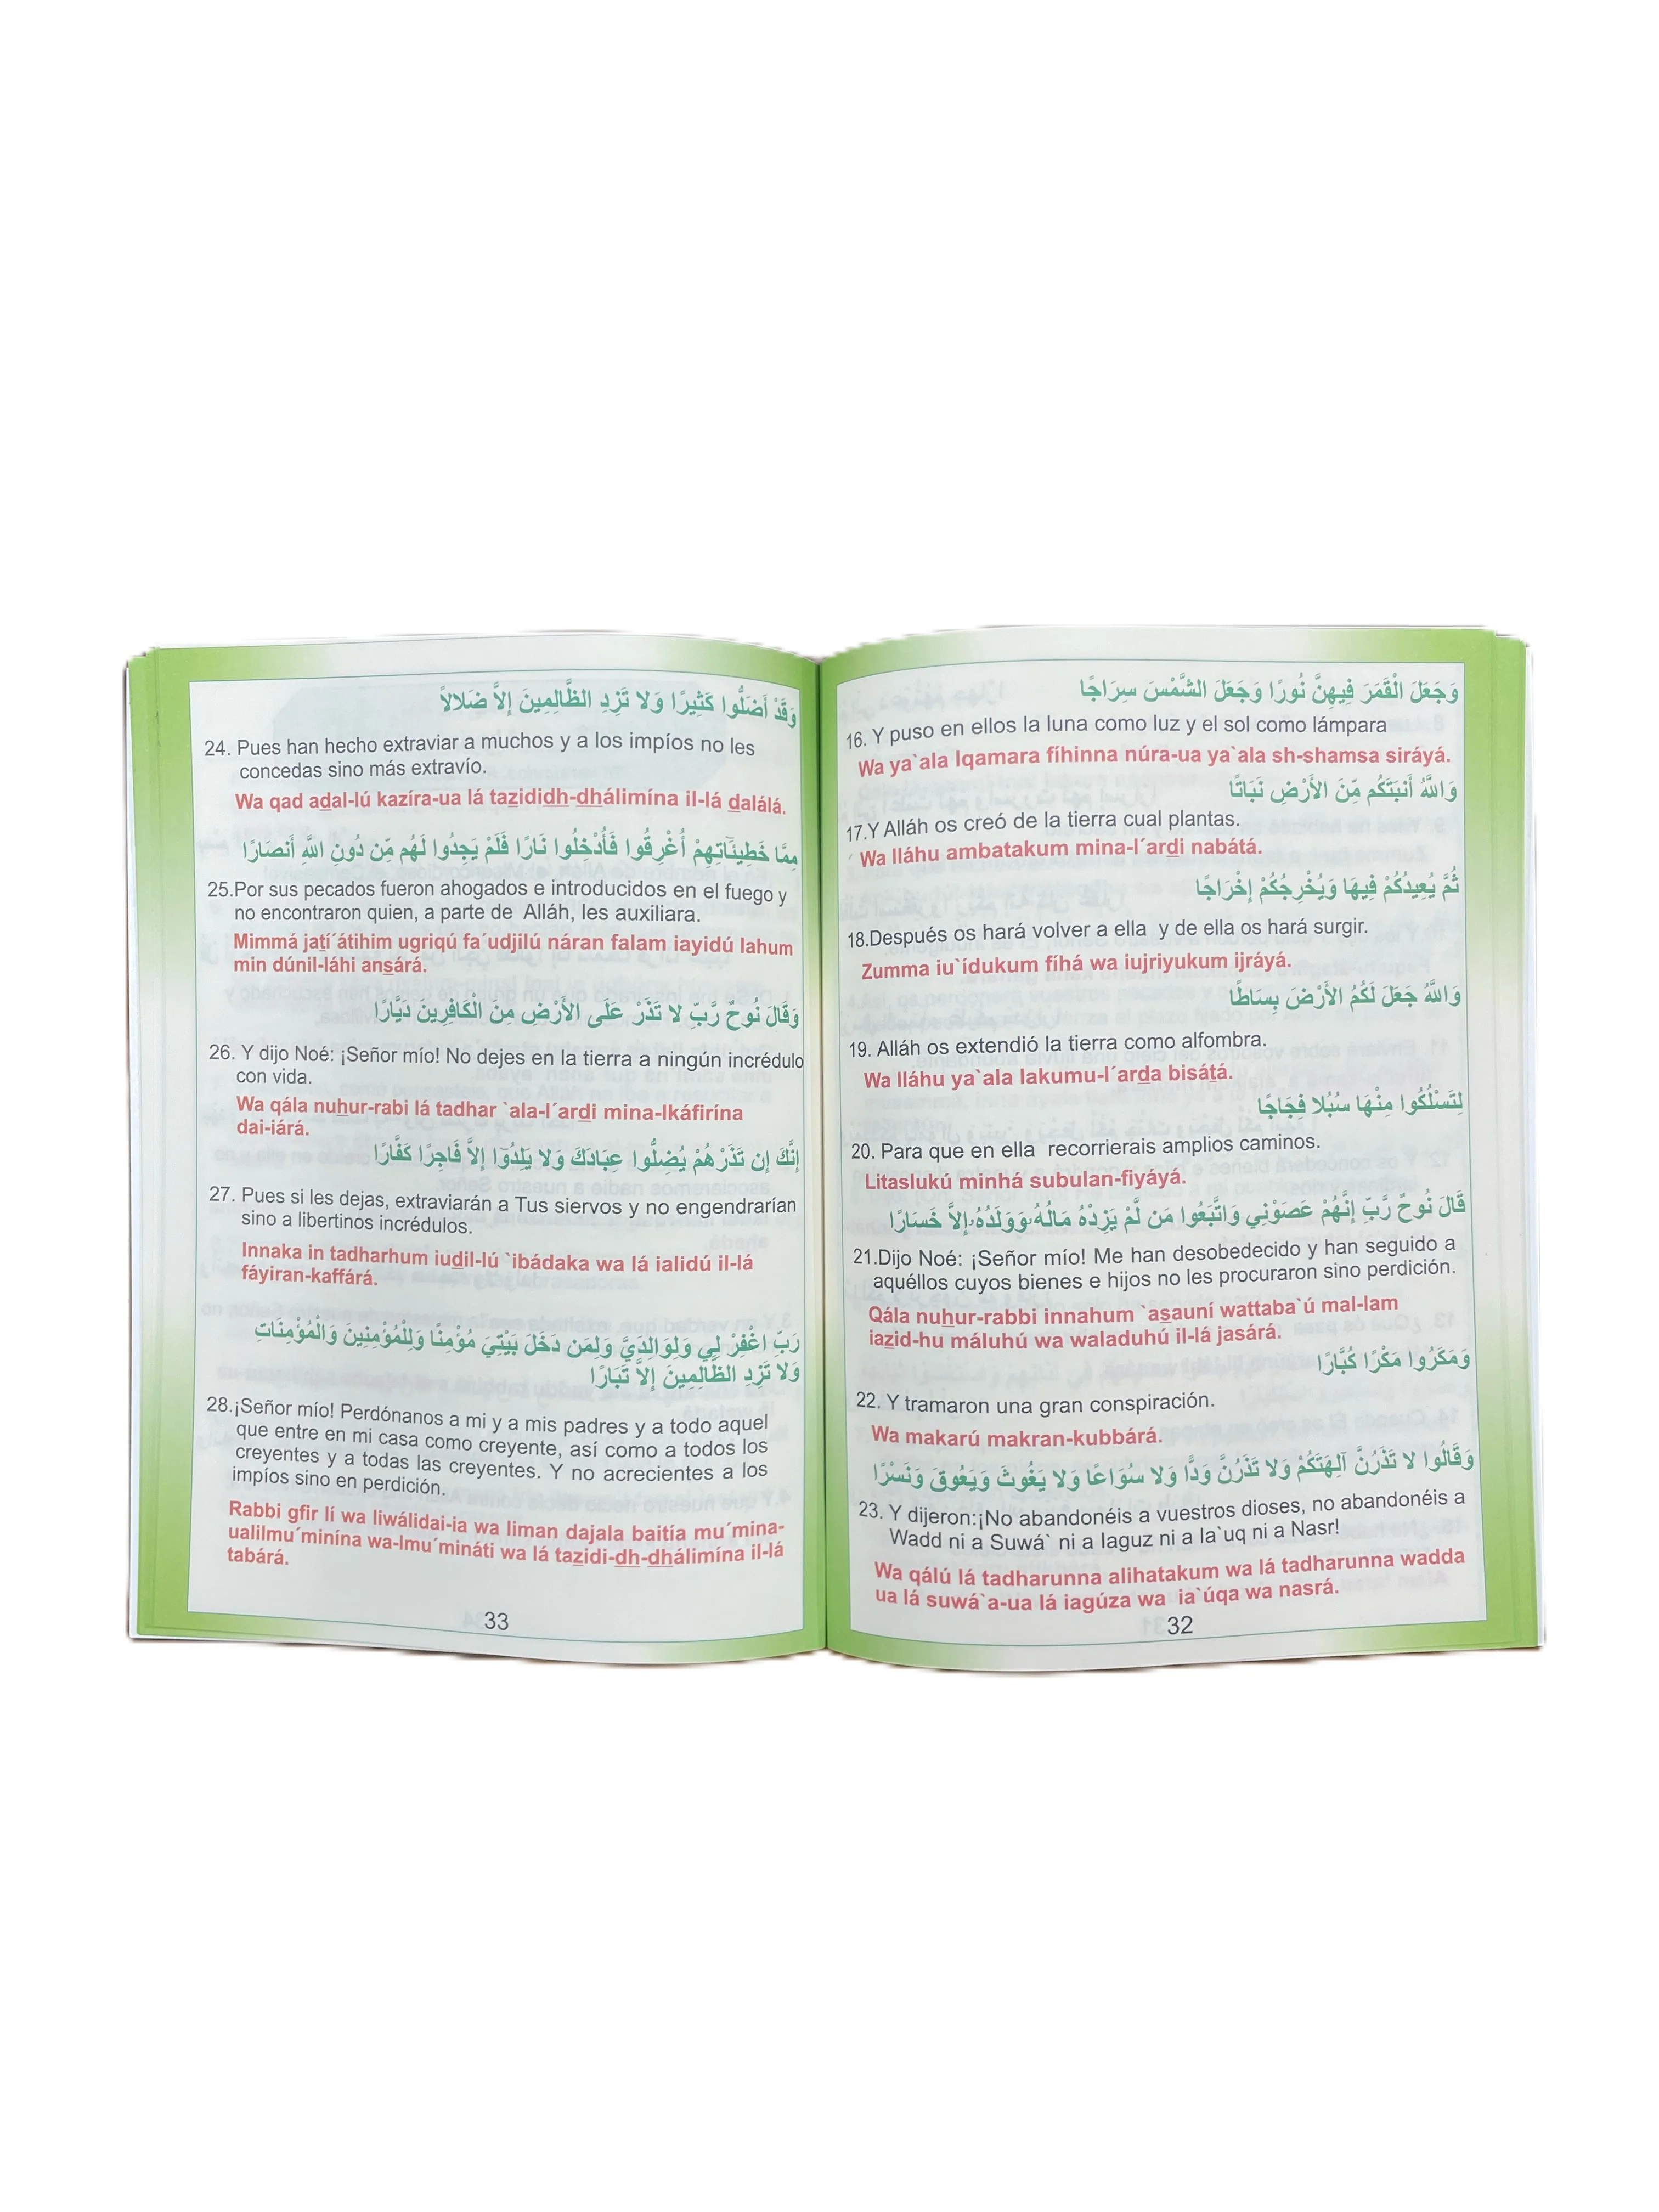 وَجَعَلَ الْقَمَرَ فِيهِنَّ نُورًا وَجَعَلَ الشَّمْسَ سِرَاجًا
16. Y puso en ellos la luna como luz y el sol como lámpara
Wa ya`ala lqamara fíhinna núra-ua ya`ala sh-shamsa siráyá.
وَاللَّهُ أَنبَتَكُم مِّنَ الأَرْضِ نَبَاتًا
17.Y Alláh os creó de la tierra cual plantas.
Wa lláhu ambatakum mina-l´ardi nabátá.
ثُمَّ يُعِيدُكُمْ فِيهَا وَيُخْرِجُكُمْ إِخْرَاجًا
18.Después os hará volver a ella y de ella os hará surgir.
Zumma iu`ídukum fíhá wa iujriyukum ijráyá.
وَاللَّهُ جَعَلَ لَكُمُ الأَرْضَ بِسَاطًا
19. Alláh os extendió la tierra como alfombra.
Wa lláhu ya`ala lakumu-l´arda bisátá.
لِتَسْلُكُوا مِنْهَا سُبُلا فِجَاجًا
20. Para que en ella recorrierais amplios caminos.
Litaslukú minhá subulan-fiyáyá.
قَالَ نُوحٌ رَّبِّ إِنَّهُمْ عَصَوْنِي وَاتَّبَعُوا مَن لَّمْ يَزِدْهُ مَالُهُ وَوَلَدُهُ إِلاَّ خَسَارًا
21.Dijo Noé: ¡Señor mío! Me han desobedecido y han seguido a
aquéllos cuyos bienes e hijos no les procuraron sino perdición.
Qála nuhur-rabbi innahum `asauní wattaba`ú mal-lam
iazid-hu máluhú wa waladuhú il-lá jasárá.
وَمَكَرُوا مَكْرًا كُبَّارًا
22. Y tramaron una gran conspiración.
Wa makarú makran-kubbárá.
وَقَالُوا لا تَذَرُنَّ آلِهَتَكُمْ وَلا تَذَرُنَّ وَدًّا وَلا سُوَاعًا وَلا يَغُوثَ وَيَعُوقَ وَنَسْرًا
23. Y dijeron:¡No abandonéis a vuestros dioses, no abandonéis a
Wadd ni a Suwá` ni a Iaguz ni a Ia`uq ni a Nasr!
Wa qálú lá tadharunna alihatakum wa lá tadharunna wadda
ua lá suwá`a-ua lá iagúza wa ia`úqa wa nasrá.
32
وَقَدْ أَضَلُّوا كَثِيرًا وَلا تَزِدِ الظَّالِمِينَ إِلاَّ ضَلالاً
24. Pues han hecho extraviar a muchos y a los impíos no les
concedas sino más extravío.
Wa qad adal-lú kazíra-ua lá tazididh-dhálimína il-lá dalálá.
مِمَّا خَطِيئَاتِهِمْ أُغْرِقُوا فَأُدْخِلُوا نَارًا فَلَمْ يَجِدُوا لَهُم مِّن دُونِ اللَّهِ أَنصَارًا
25.Por sus pecados fueron ahogados e introducidos en el fuego y
no encontraron quien, a parte de Alláh, les auxiliara.
Mimmá jatí´átihim ugriqú fa´udjilú náran falam iayidú lahum
min dúnil-láhi ansárá.
وَقَالَ نُوحٌ رَّبِّ لا تَذَرْ عَلَى الأَرْضِ مِنَ الْكَافِرِينَ دَيَّارًا
26. Y dijo Noé: ¡Señor mío! No dejes en la tierra a ningún incrédulo
con vida.
Wa qála nuhur-rabi lá tadhar `ala-l´ardi mina-lkáfirína
dai-iárá.
إِنَّكَ إِن تَذَرْهُمْ يُضِلُّوا عِبَادَكَ وَلا يَلِدُوا إِلاَّ فَاجِرًا كَفَّارًا
27. Pues si les dejas, extraviarán a Tus siervos y no engendrarían
sino a libertinos incrédulos.
Innaka in tadharhum iudil-lú `ibádaka wa lá ialidú il-lá
fáyiran-kaffárá.
رَبِّ اغْفِرْ لِي وَلِوَالِدَيَّ وَلِمَن دَخَلَ بَيْتِيَ مُؤْمِنًا وَلِلْمُؤْمِنِينَ وَالْمُؤْمِنَاتِ
وَلا تَزِدِ الظَّالِمِينَ إِلاَّ تَبَارًا
28.¡Señor mío! Perdónanos a mi y a mis padres y a todo aquel
que entre en mi casa como creyente, así como a todos los
creyentes y a todas las creyentes. Y no acrecientes a los
impíos sino en perdición.
Rabbi gfir lí wa liwálidai-ia wa liman dajala baitía mu´mina-
ualilmu´minína wa-lmu´mináti wa lá tazidi-dh-dhálimína il-lá
tabárá.
33